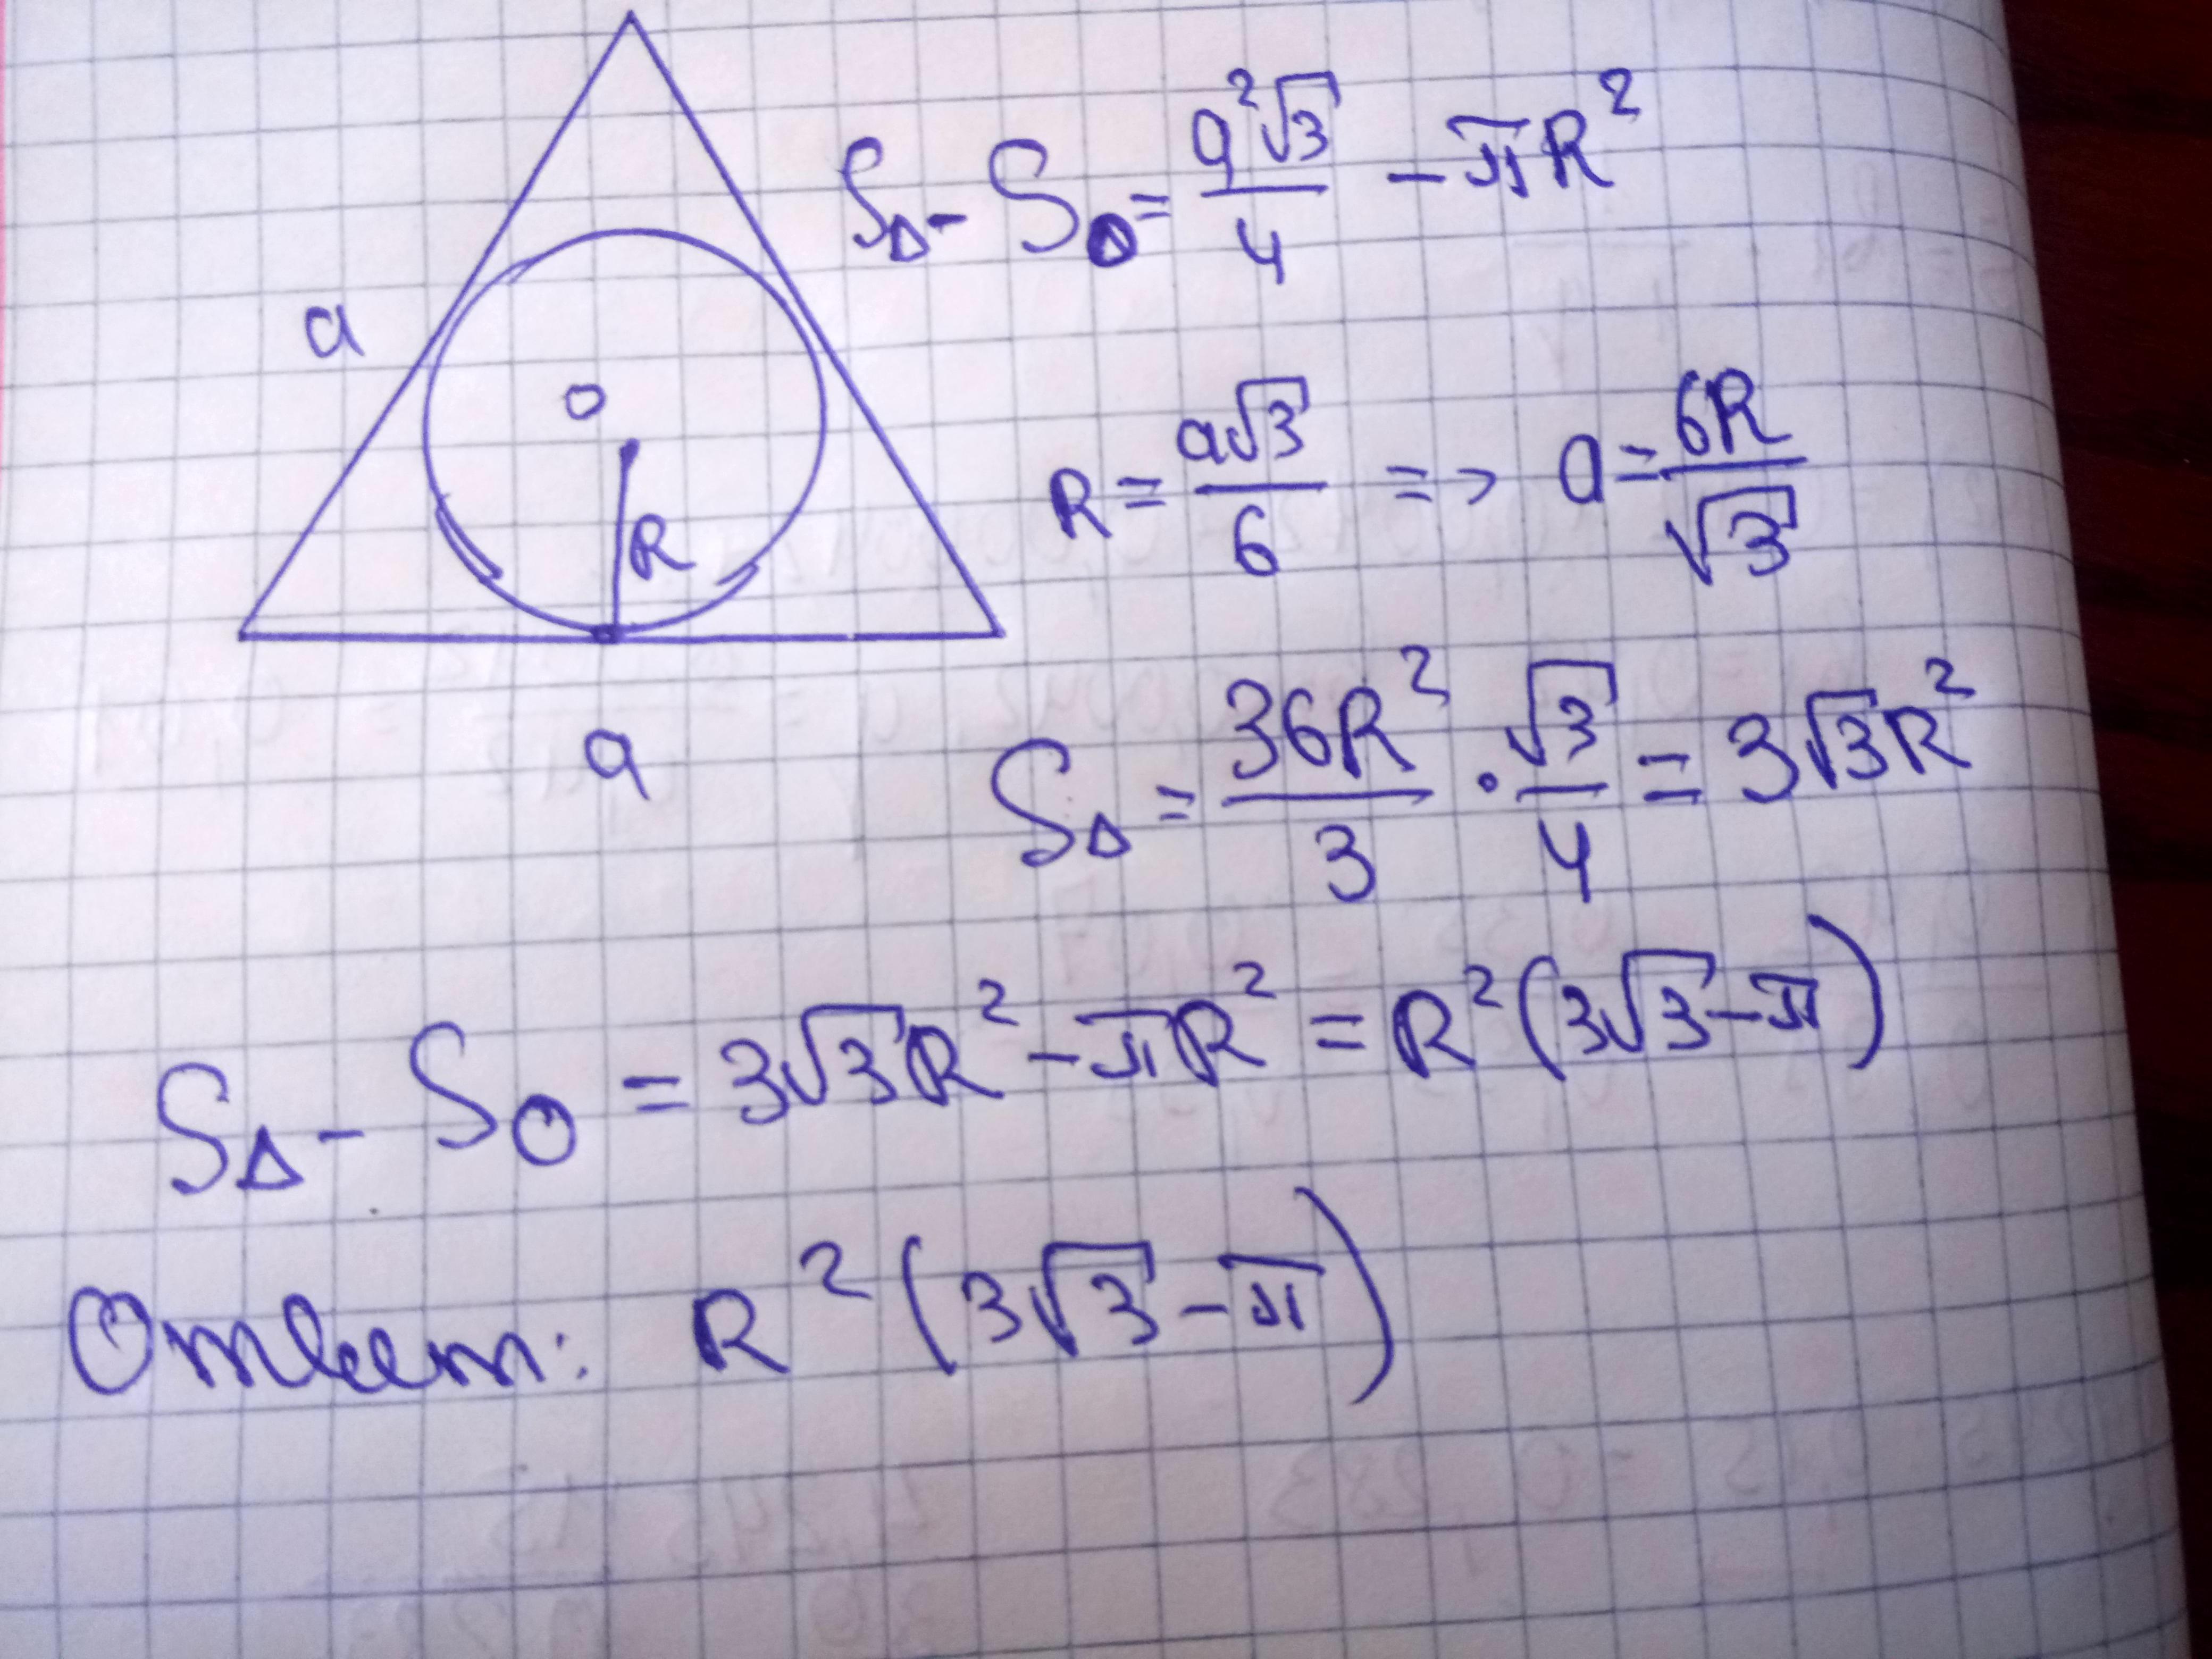 a
O
R
a
S△ - S○ = a²√3/4 - πR²
R = a√3/6 => a = 6R/√3
S△ = 36R²/3 · √3/4 = 3√3R²
S△ - S○ = 3√3R² - πR² = R²(3√3 - π)
Ответ: R²(3√3 - π)